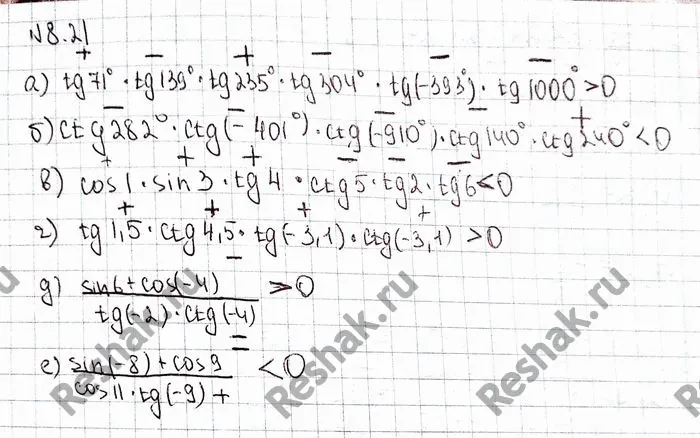 N8.21
+ − + − − −
а) tg71° · tg139° · tg235° · tg304° · tg(-393°) · tg1000° > 0
− − − − +
б) ctg282° · ctg(-401°) · ctg(-910°) · ctg140° · ctg240° < 0
+ + + − − −
в) cos1 · sin3 · tg4 · ctg5 · tg2 · tg6 < 0
+ + + +
г) tg1,5 · ctg4,5 · tg(-3,1) · ctg(-3,1) > 0
−
д) sin6 + cos(-4) / tg(-2) · ctg(-4) > 0
=
е) sin(-8) + cos9 / cos11 · tg(-9) + < 0
Reshak.ru
Reshak.ru
Reshak.ru